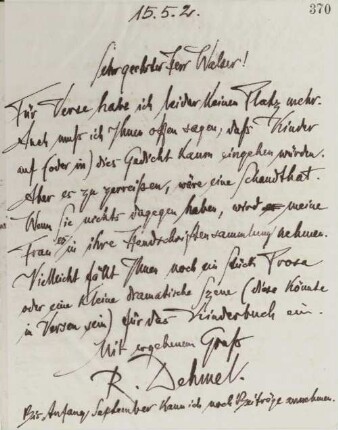 15.5.2.
370
Sehr geehrter Herr Walser!
Für Verse habe ich leider keinen Platz mehr.
Auch muß ich Ihnen offen sagen, daß Kinder
auf (oder in) dies Gedicht kaum eingehen würden.
Aber es zu zerreißen, wäre eine Schandthat.
Wenn Sie nichts dagegen haben, wird meine
Frau es in ihre Handschriftensammlung nehmen.
Vielleicht fällt Ihnen noch ein Stück Prosa
oder eine kleine dramatische Szene (diese könnte
in Versen sein) für das Kinderbuch ein.
Mit ergebenem Gruß
R. Dehmel.
Bis Anfang September kann ich noch Beiträge annehmen.